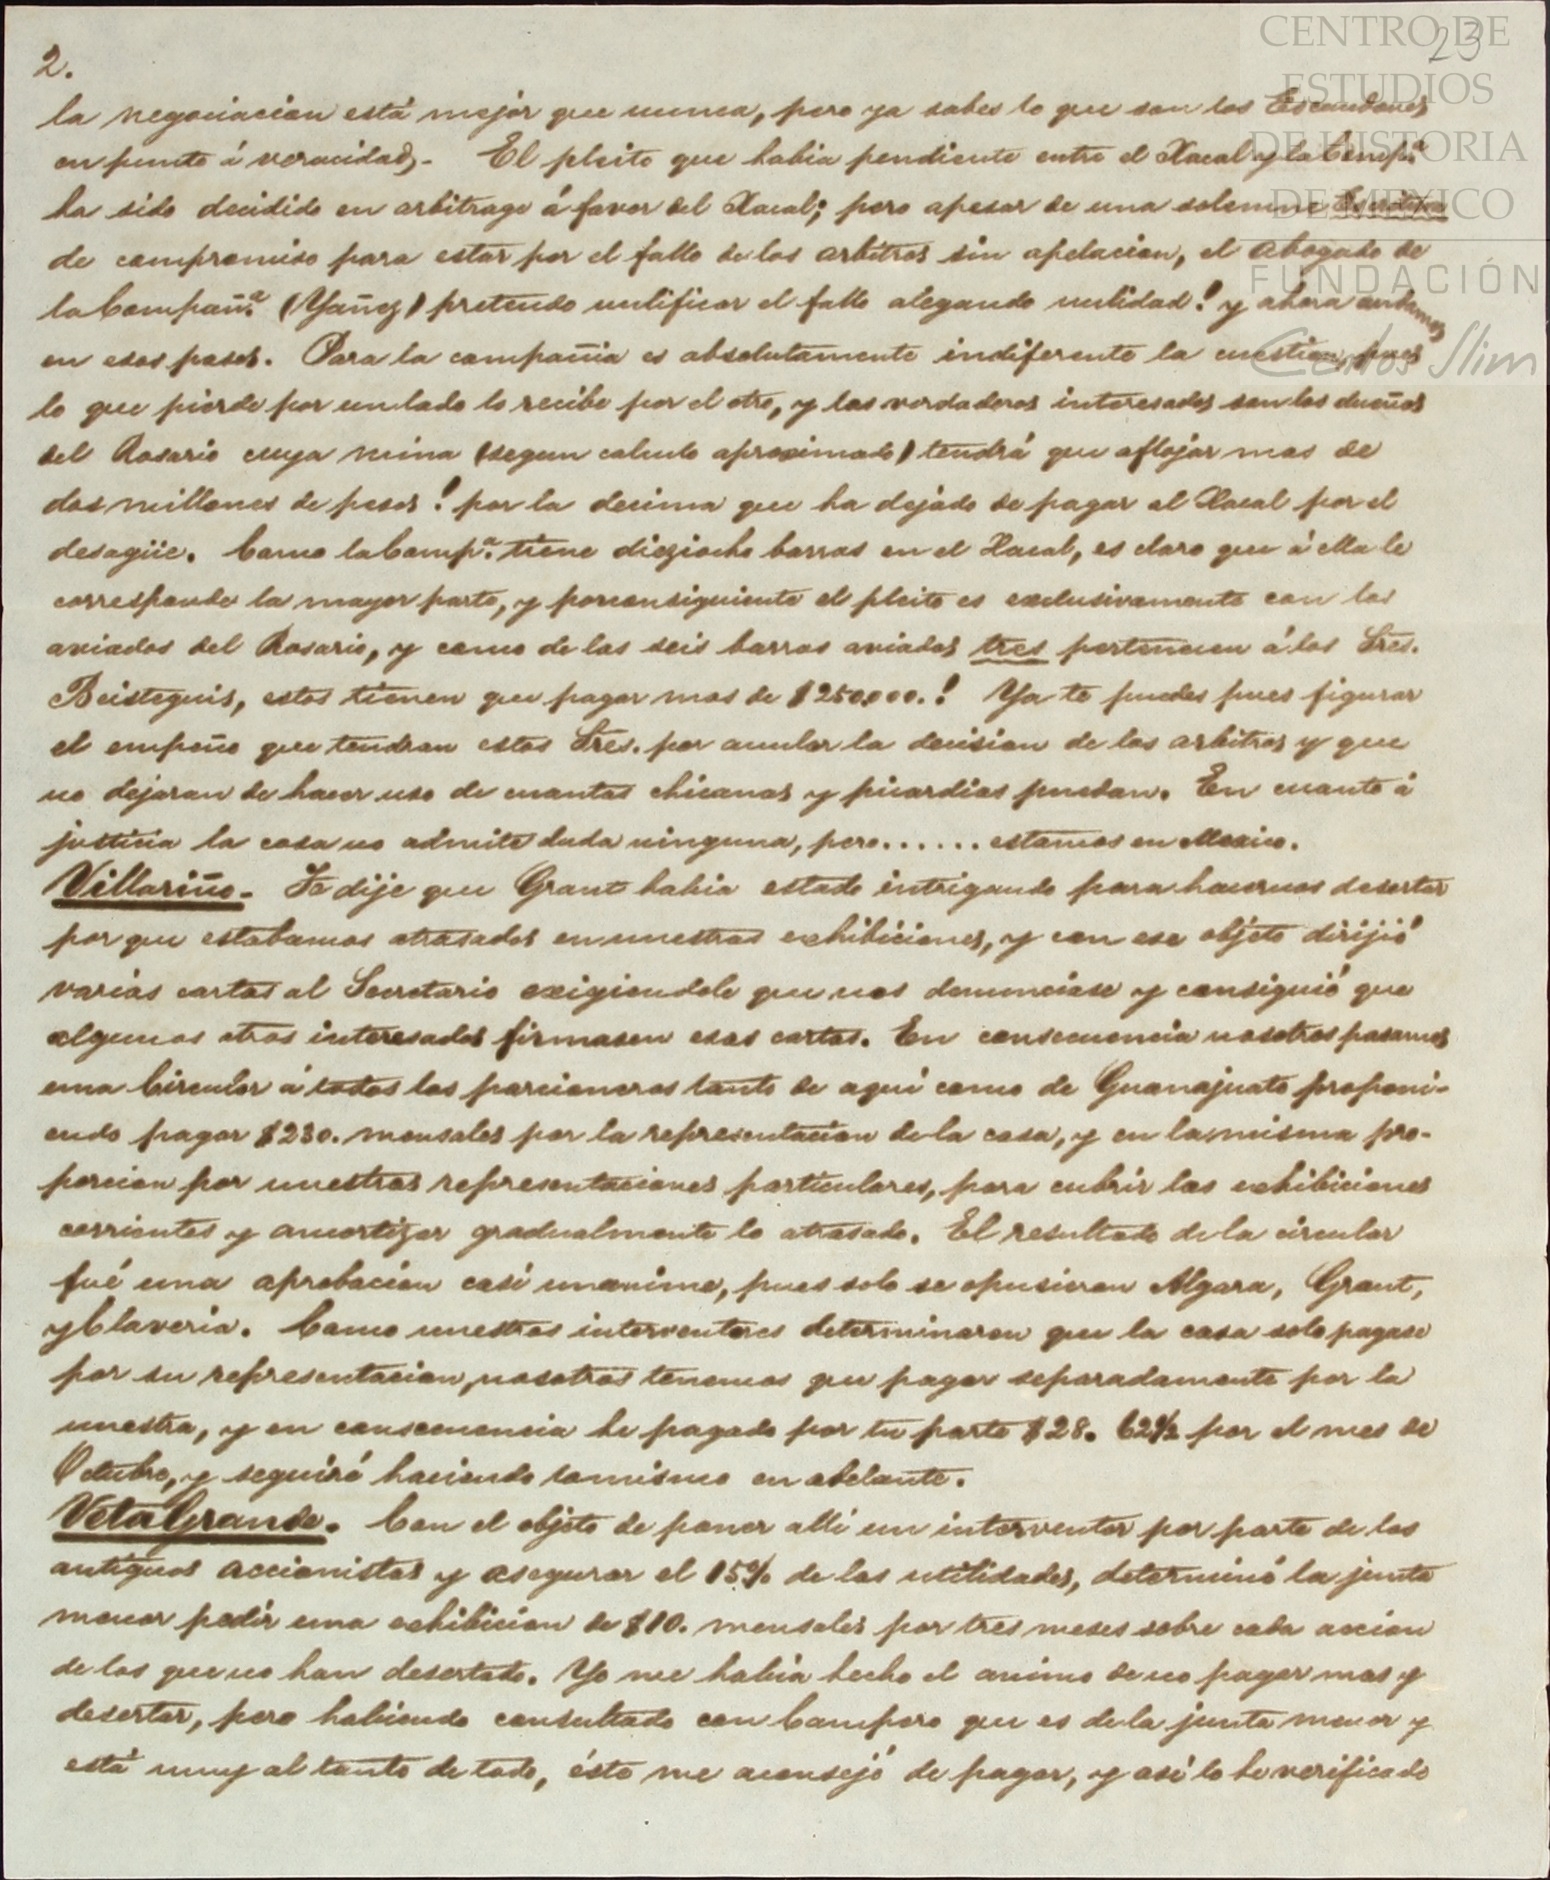 2.
23
CENTRO DE
ESTUDIOS
DE HISTORIA
DE MEXICO
FUNDACIÓN
Carlos Slim
la negociacion está mejór que nunca, pero ya sabes lo que son los Escandones
en punto á veracidad,. El pleito que habia pendiente entre el Xacal y la Comp.ª
ha sido decidido en arbitrage á favor del Xacal; pero apesar de una solemne Escritura
de compromiso para estar por el fallo de los arbitros sin apelacion, el abogado de
la Compañ.ª (Yañez) pretende nulificar el fallo alegando nulidad! y ahora andamos
en esos pasos. Para la compañia es absolutamente indiferente la cuestion, pues
lo que pierde por un lado lo recibe por el otro, y los verdaderos interesados son los dueños
del Rosario cuya mina (segun calculo aproximado) tendrá que aflojar mas de
dos millones de pesos! por la decima que ha dejado de pagar al Xacal por el
desagüe. Como la Comp.ª tiene dieziocho barras en el Xacal, es claro que á ella le
corresponde la mayor parte, y porconsiguiente el pleito es exclusivamente con los
aviados del Rosario, y como de las seis barras aviadas tres pertenecen á los Sres.
Beisteguis, estos tienen que pagar mas de $250,000.! Ya te puedes pues figurar
el empeño que tendran estos Sres. por anular la decision de los arbitros y que
no dejaran de hacer uso de cuantas chicanas y picardias puedan. En cuanto á
justicia la cosa no admite duda ninguna, pero...... estamos en Mexico.
Villariño. Te dije que Grant habia estado intrigando para hacernos desertar
por que estabamos atrasados en nuestras exhibiciones, y con ese objeto dirijió
varias cartas al Secretario exigiendole que nos denunciase y consiguió que
algunos otros interesados firmasen esas cartas. En consecuencia nosotros pasamos
una Circular á todos los parcioneros tanto de aquí como de Guanajuato proponi-
endo pagar $230. mensales por la representacion de la casa, y en la misma pro-
porcion por nuestras representaciones particulares, para cubrir las exhibiciones
corrientes y amortizar gradualmente lo atrasado. El resultado de la circular
fué una aprobacion casi unanime, pues solo se opusieron Algara, Grant,
y Claveria. Como nuestros interventores determinaron que la casa solo pagase
por su representacion, nosotros tenemos que pagar separadamente por la
nuestra, y en consecuencia he pagado por tu parte $28. 62½ por el mes de
Octubre, y seguiré haciendo lo mismo en adelante.
Veta Grande. Con el objeto de poner allí un interventor por parte de los
antiguos accionistas y asegurar el 15% de las utilidades, determinó la junta
menor pedir una exhibicion de $10. mensales por tres meses sobre cada accion
de los que no han desertado. Yo me habia hecho el animo de no pagar mas y
desertar, pero habiendo consultado con Campero que es de la junta menor y
está muy al tanto de todo, éste me aconsejó de pagar, y asi lo he verificado